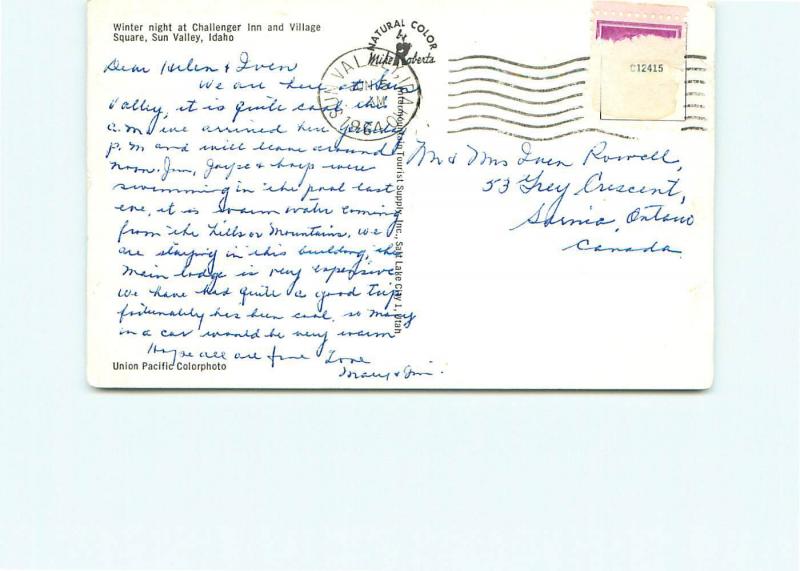 Winter night at Challenger Inn and Village
Square, Sun Valley, Idaho
NATURAL COLOR
by
Mike Roberts
SUN VALLEY, IDAHO
AM
C12415
Dear Helen & Iven
We are here at Sun
Valley, it is quite cool this
a.m. we arrived here yesterday
p.m and will leave around
noon. Jim, Joyce & were
swimming in the pool last
eve, it is warm water coming
from the hills or Mountains. We
are staying in this building, the
main lodge is very expensive
We have had quite a good trip
fortunately has been cool, so many
in a car would be very warm
Hope all are fine Love
Mary & Jim.
Mr & Mrs Iven Rowell,
53 Grey Crescent,
Sarnia, Ontario
Canada.
Intermountain Tourist Supply, Inc., Salt Lake City 1, Utah
Union Pacific Colorphoto